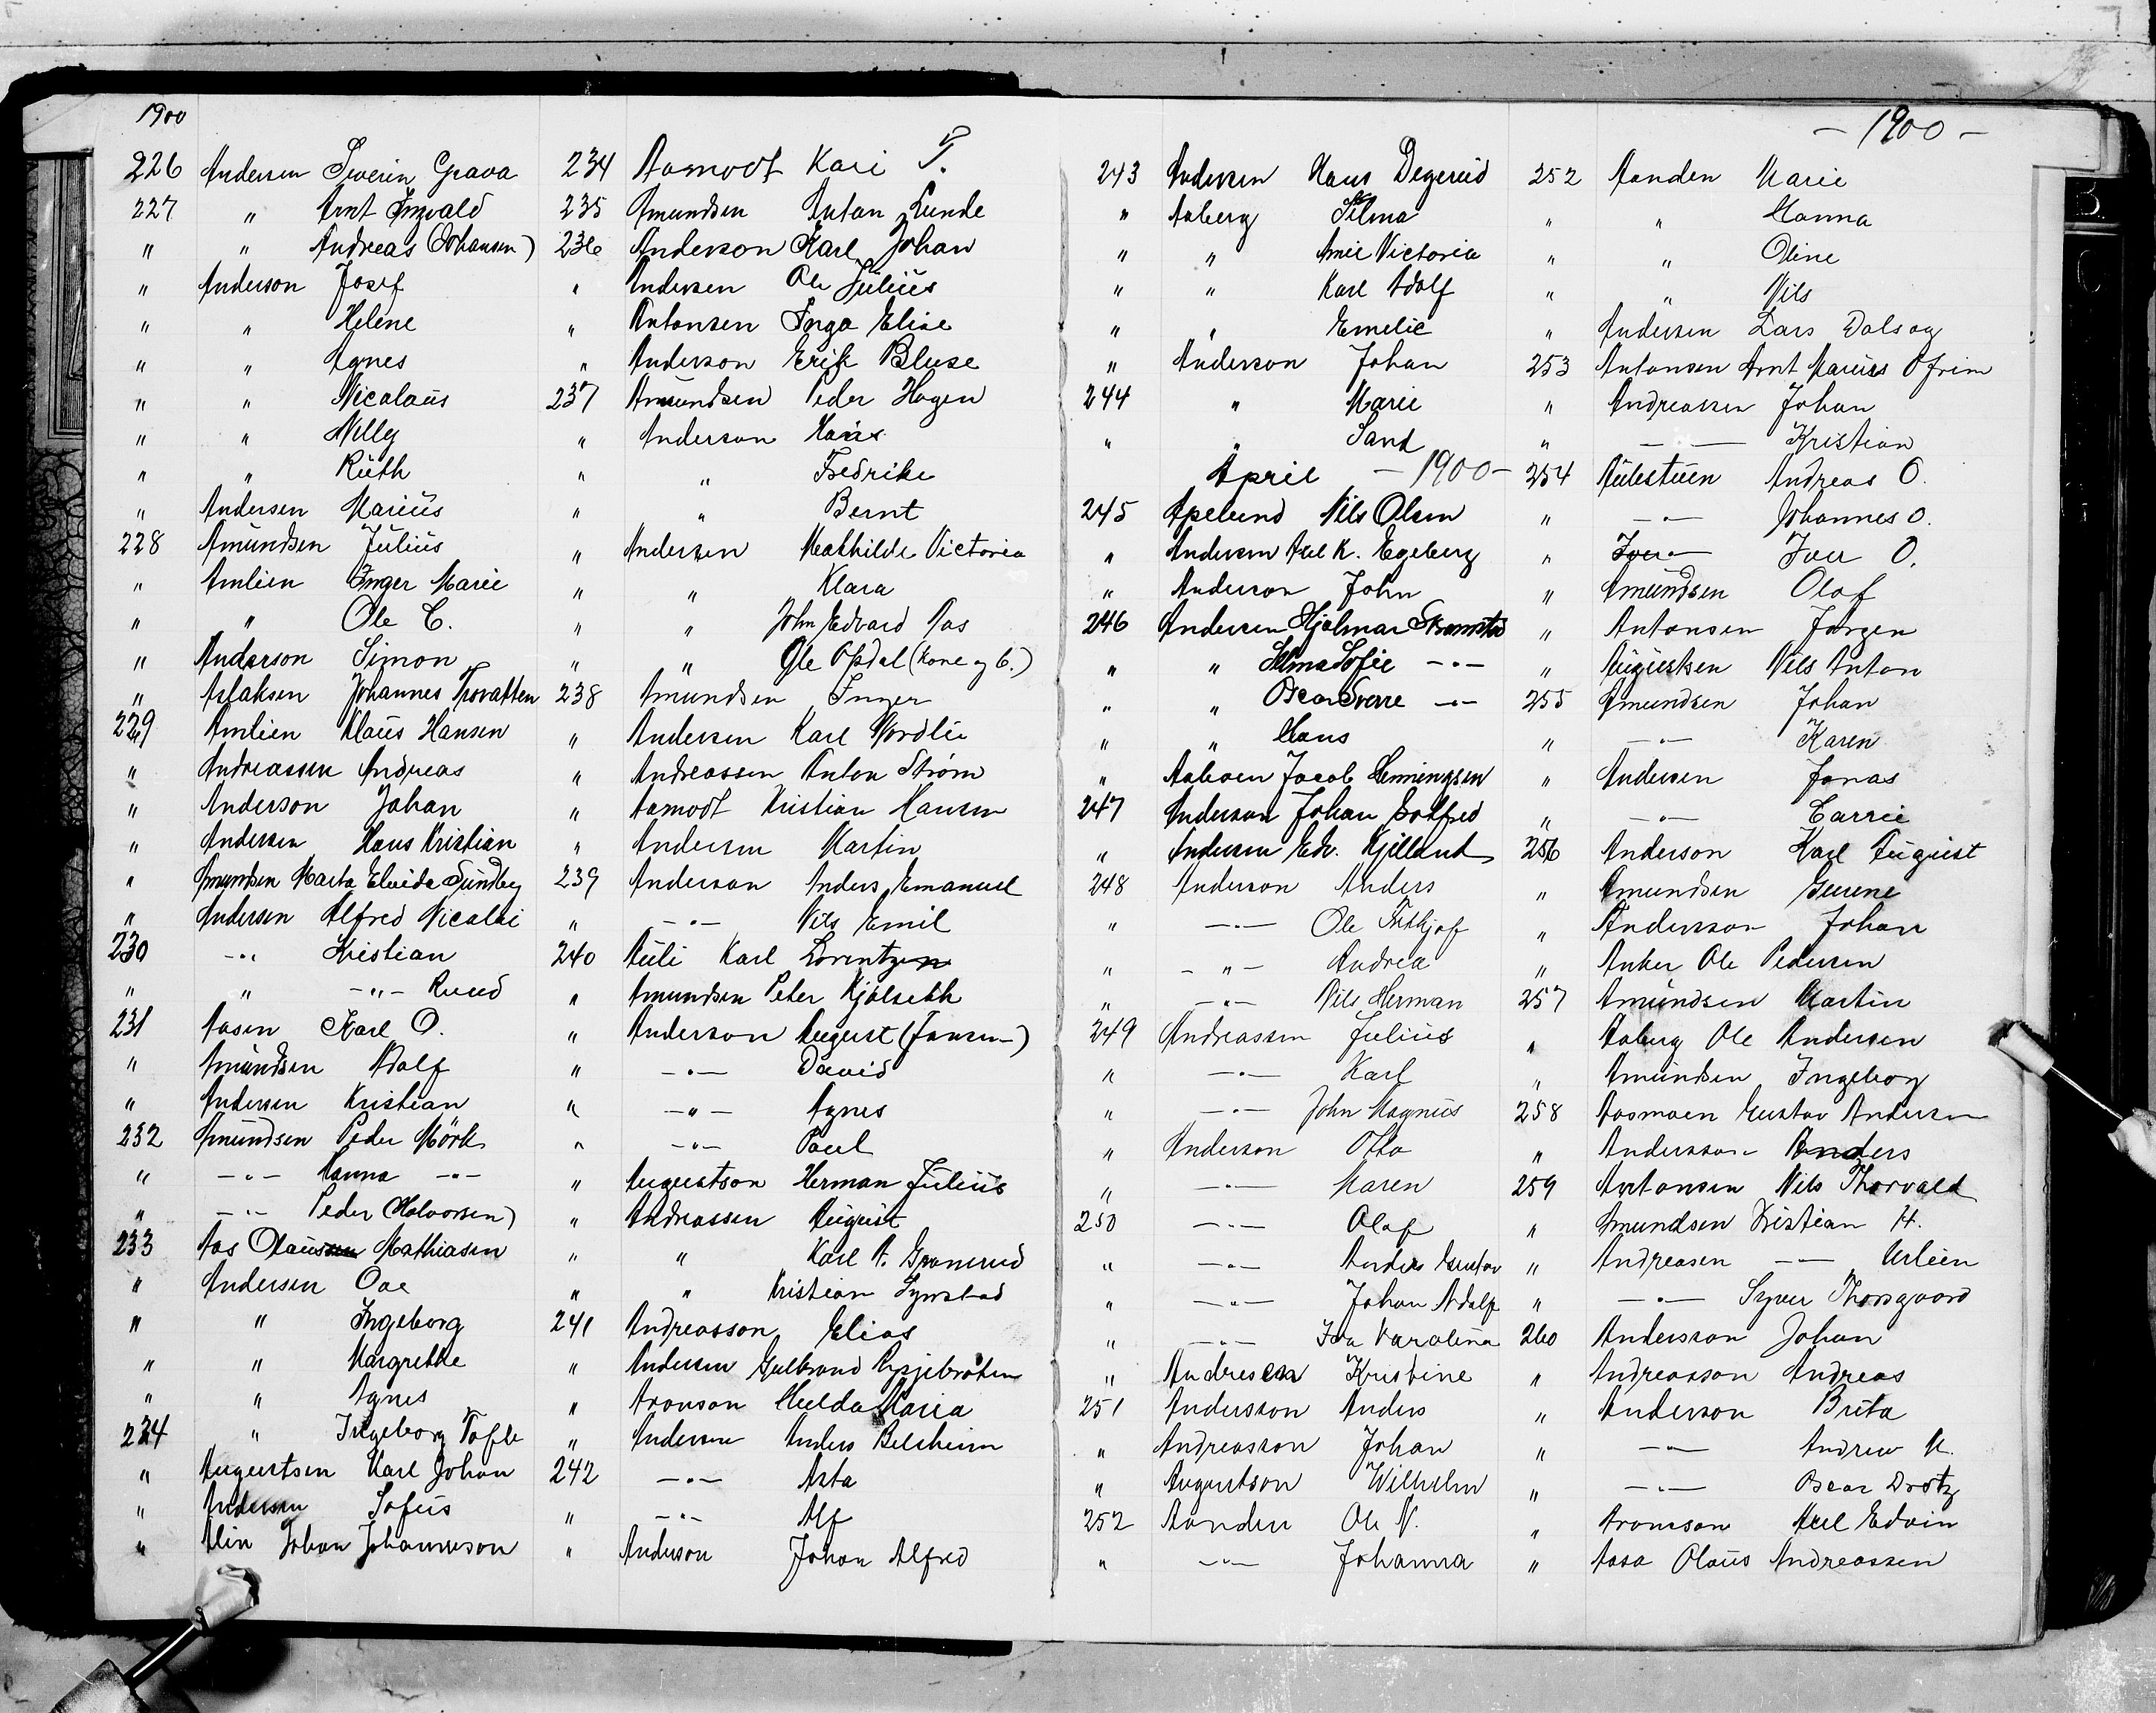 1900
226 Andersen Severin Grava
227 " Arnt Ingvald
" " Andreas (Johansen)
" Anderson Josef
" " Helene
" " Agnes
" " Nicolaus
" " Nelly
" " Ruth
" Andersen Marius
228 Amundsen Julius
" Amlien Inger Marie
" " Ole C.
" Anderson Simon
" Aslaksen Johannes Trovatten
229 Amlien Klaus Hansen
" Andreassen Andreas
" Anderson Johan
" Andersen Hans Kristian
" Amundsen Marta Elvida Sundby
" Andersen Alfred Nicolai
230 -"- Kristian
" " -"- Ruud
231 Aasen Karl O.
" Amundsen Adolf
" Andersen Kristian
232 Amundsen Peder Mörk
" -"- Hanna -"-
" -"- Peder (Halvorsen)
233 Aas Olaus Mathiasen
" Andersen Ove
" " Ingeborg
" " Margrethe
" " Agnes
234 " Ingeborg Tofte
" Augustsen Karl Johan
" Andersen Sofus
" Alin Johan Johanneson
234 Aamodt Kari T.
235 Amundsen Anton Lunde
236 Anderson Karl Johan
" Andersen Ole Julius
" Antonsen Inga Elise
" Anderson Erik Bluse
237 Amundsen Peder Hagen
" Anderson Hans
" " Fredrike
" " Bernt
" Andersen Mathilde Victoria
" " Klara
" " John Edvard Aas
" " Ole Opdal (Kone og b.)
238 Amundsen Inger
" Andersen Karl Nordlie
" Andreassen Anton Strøm
" Aamodt Kristian Hansen
" Andersen Martin
239 Anderson Anders Emanuel
" -"- Nils Emil
240 Auli Karl Lorentzen
" Amundsen Peter Kjölseth
" Anderson August (Jansen)
" -"- David
" -"- Agnes
" -"- Paul
" Augustson Herman Julius
" Andreassen August
" " Karl A. Granerud
" " Kristian Synstad
241 Andreasson Elias
" Andersen Gulbrand Rysjebråten
" Aronson Hulda Maria
" Andersen Anders Belsheim
242 -"- Asta
" -"- Alf
" Anderson Johan Alfred
243 Andersen Hans Degerud
" Aaberg Selma
" " Amie Victoria
" " Karl Adolf
" " Emelie
" Anderson Johan
244 " Marie
" " Sand
April - 1900 -
245 Apelund Nils Olsen
" Andersen Axel K. Egeberg
" Anderson John
246 Andersen Hjalmar Stromstad
" " Selma Sofie -"-
" " Oscar Sverre -"-
" " Hans
" Aaboen Jacob Henningsen
247 Anderson Johan Gotfred
" Andersen Edv. Kjelland
248 Anderson Anders
" -"- Ole Frithjof
" -"- Andrea
" -"- Nils Herman
249 Andreassen Julius
" -"- Karl
" -"- John Magnus
" Anderson Otto
" -"- Maren
250 -"- Olaf
" -"- Anders Gustav
" -"- Johan Adolf
" -"- Ida Karolina
" Andresen Kristine
251 Andersson Anders
" Andreasson Johan
" Augustson Wilhelm
252 Aanden Ole N.
" -"- Johanna
- 1900 -
252 Aanden Marie
" " Hanna
" " Oline
" " Nils
" Andersen Lars Dalsag
253 Antonsen Arnt Marius Ofrim
" Andreassen Johan
" -"- Kristian
254 Aulestuen Andreas O.
" -"- Johannes O.
" -"- Iver O.
" Amundsen Olaf
" Antonsen Jørgen
" Augustsen Nils Anton
255 Amundsen Johan
" -"- Karen
" Andersen Jonas
" -"- Carrie
256 Anderson Karl August
" Amundsen Gurine
" Andersson Johan
" Anker Ole Pedersen
257 Amundsen Martin
" Aaberg Ole Andersen
" Amundsen Ingeborg
258 Aasmoen Gustav Andersen
" Andersson Anders
259 Antonsen Nils Thorvald
" Amundsen Kristian H.
" Andreasen -"- Urleen
" -"- Syver Thorsgaard
260 Andersson Johan
" Andreasson Andreas
" Anderson Brita
" -"- Andrew M.
" -"- Oscar Drotz
" Aronson Axel Edvin
" Aasa Olaus Andreassen